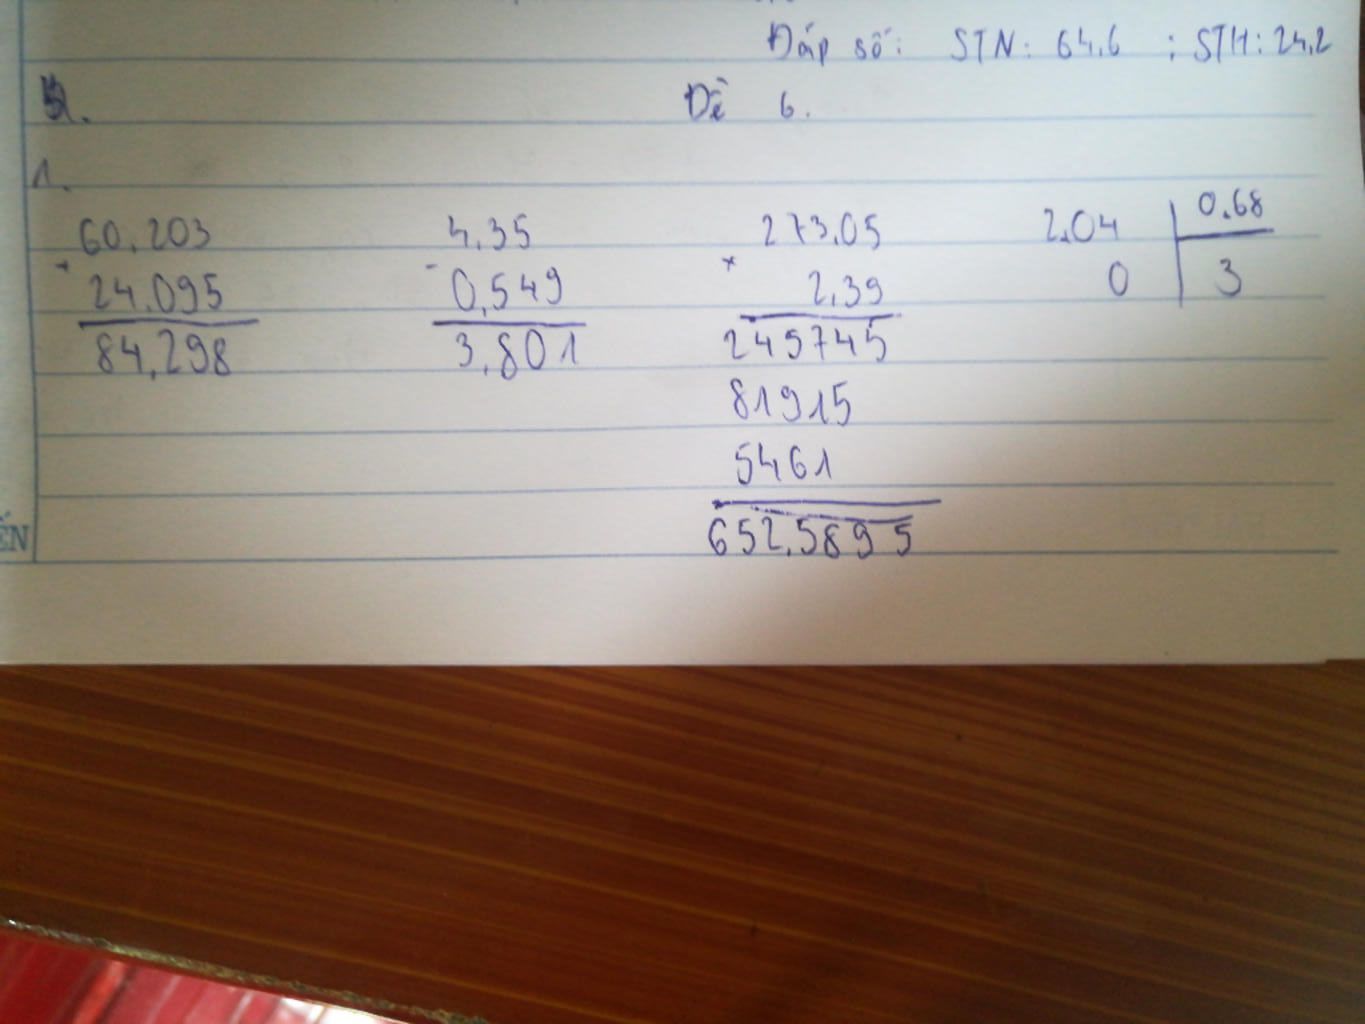 Đáp số: STN: 64,6 ; STH: 24,2
Đề 6.
1.
60,203 4,35 273,05 2,04 0,68
+ - × 
24,095 0,549 2,39 0 3
84,298 3,801 245745
81915
5461
652,5895
ẾN